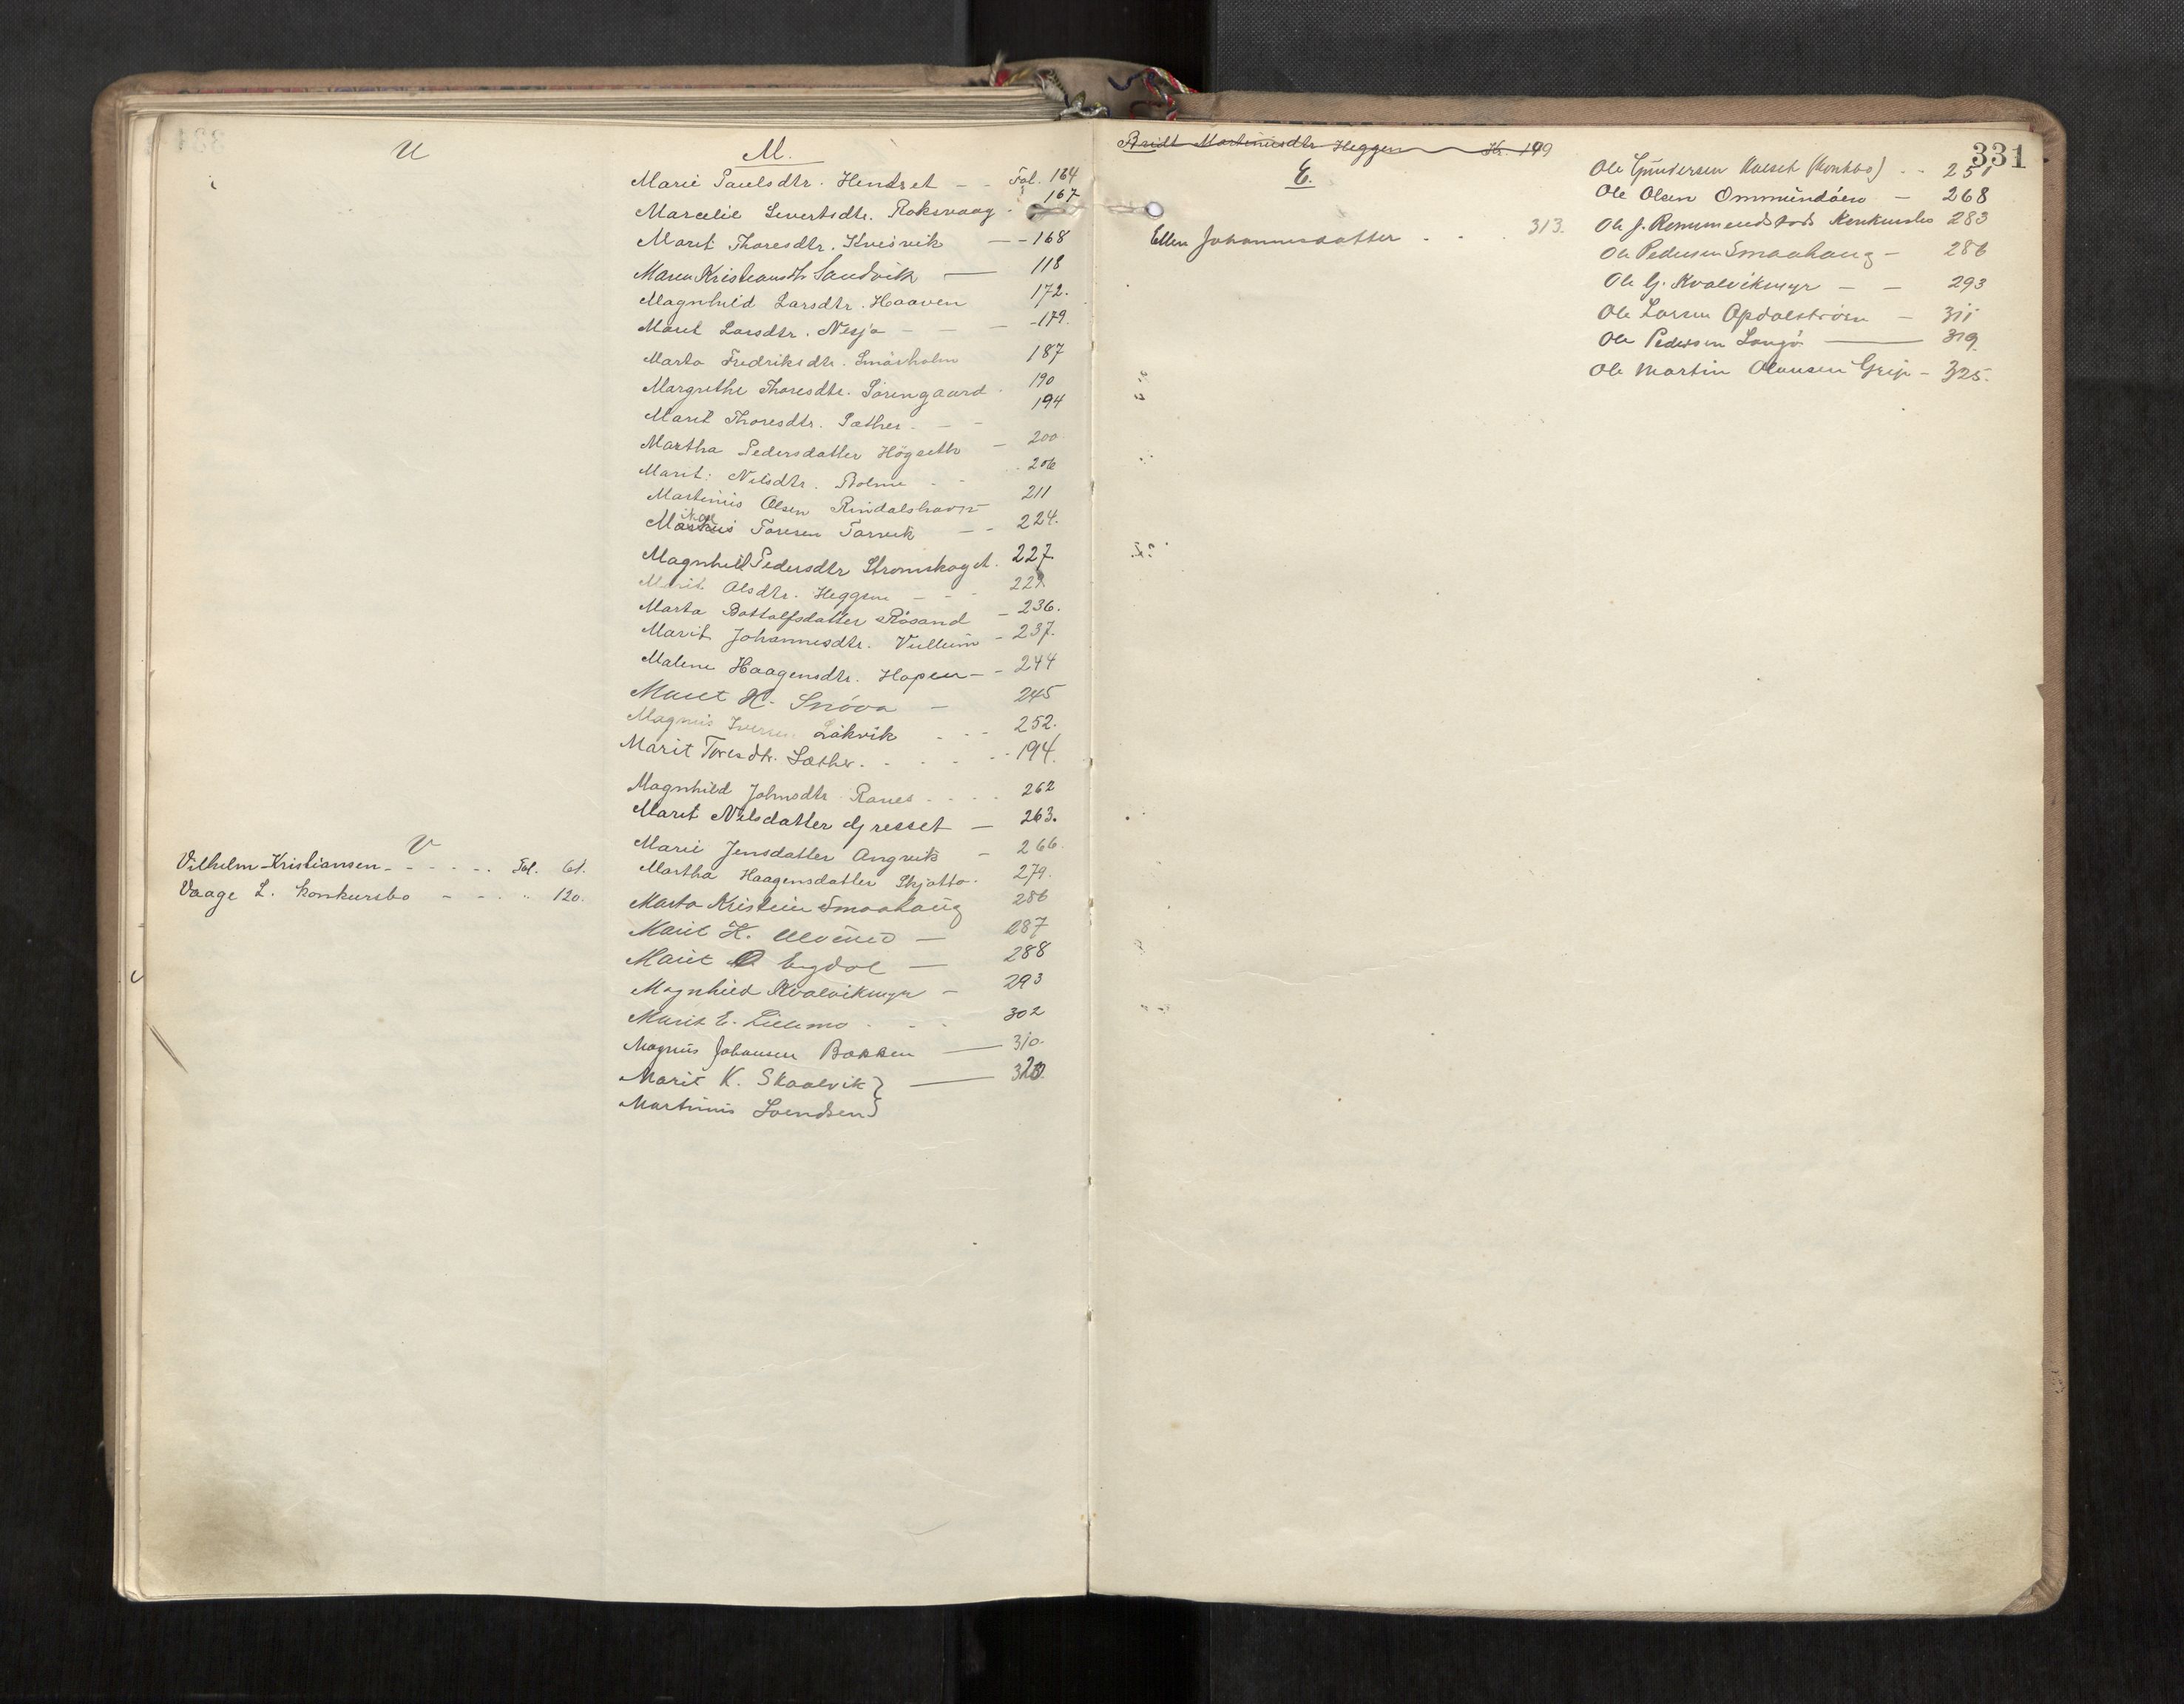 U
V
Vilhelm Kristiansen - - - - - - Fol. 61.
Vaage L. konkursbo - - - " 120.
M.
Marie Paulsdtr. Hendset - - Fol. 164
Marcelie Sivertsdtr. Roksvaag - 167
Marit Thoresdtr. Kvisvik - - 168
Maren Kristiansdtr Sandvik — 118
Magnhild Larsdtr. Haaven 172.
Marit Larsdtr. Nesja - - - 179.
Marta Fredriksdtr. Smørholm 187
Margrethe Thoresdtr. Sørengaard. 190
Marit Thoresdtr. Sæther. - - 194
Martha Pedersdatter Høgseth - 200
Marit Nilsdtr. Bolme - - . 206
Martinus Olsen Rindalshavn 211
Toresen Torvik - - 224.
Magnhild Pedersdtr Strømskaget. 227.
Marit Olsdtr. Heggem - - - 229.
Marta Bottolfsdatter Røsand - 236.
Marit Johannesdtr. Vullum - 237.
Malene Haagensdtr. Hopen - - 244
Marit H. Snøva - 245
Magnus Iversen Låkvik . - - 252.
Marit Toresdtr. Sæther. - - - - 194.
Magnhild Johnsdtr Ranes . . . . 262
Marit Nilsdatter Gjresset - 263.
Marie Jensdatter Angvik - 266.
Martha Haagensdatter Skjøtto. 279.
Marta Kristine Smaahaug 286
Marit H. Ulvund - 287
Marit O Engdal - 288
Magnhild Kvalvikmyr - 293
Marit E. Lillemo . - . 302
Magnus Johansen Bakken — 310.
Marit K. Skaalvik } — 320.
Martinus Svendsen }
Bridt Martinusdtr Heggem Kr. 199
331
E.
Ellen Johannesdatter . - . . 313.
Ole Gundersen Kalset (Konkbo) . - 251
Ole Olsen Ommundøen - 268
Ole J. Remmemstads Konkursbo 283
Ole Pedersen Smaahaug - 286
Ole G. Kvalvikmyr - - 293
Ole Larsen Opdalstrøen - 311
Ole Pedersen Langø — 319.
Ole Martin Olausen Grip - 325.